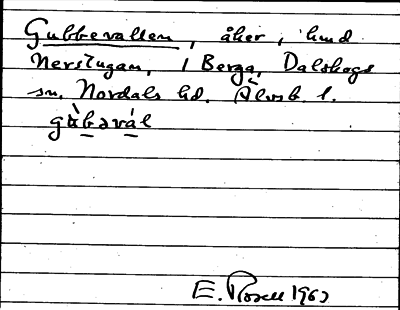 Gubbevallen, åker, i hmd
Nerstugan, 1 Berga, Dalskogs
sn. Nordals hd. Älvsb. l.
gùbəvál
E. Rosell 1963